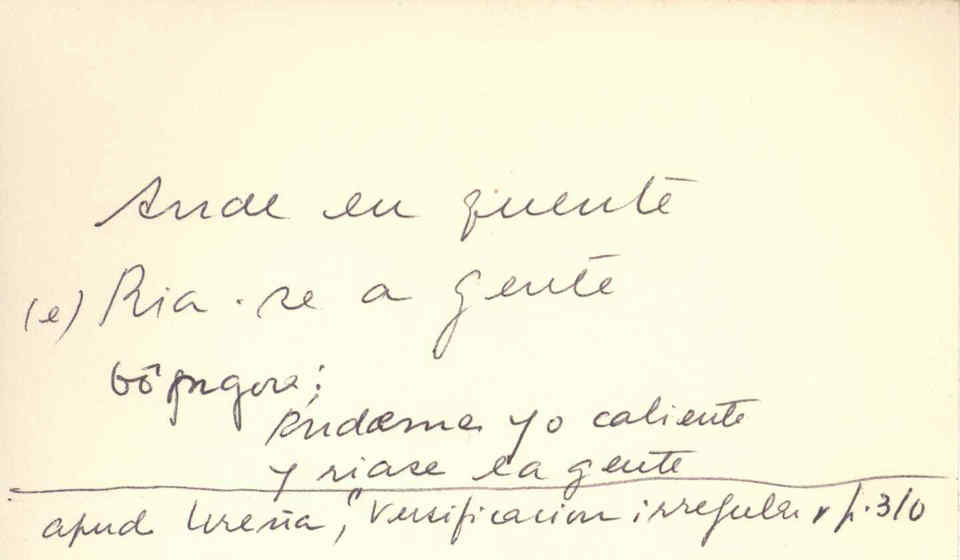 Ande eu quente
(e) Ria-se a gente
Góngora:
Andeme yo caliente
y riase la gente
apud Ureña, "Versificacion irregular, p. 310